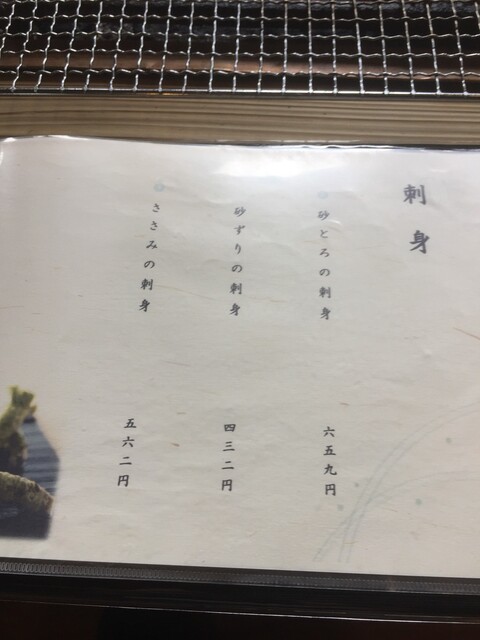 刺身
砂とろの刺身
六五九円
砂ずりの刺身
四三二円
ささみの刺身
五六二円